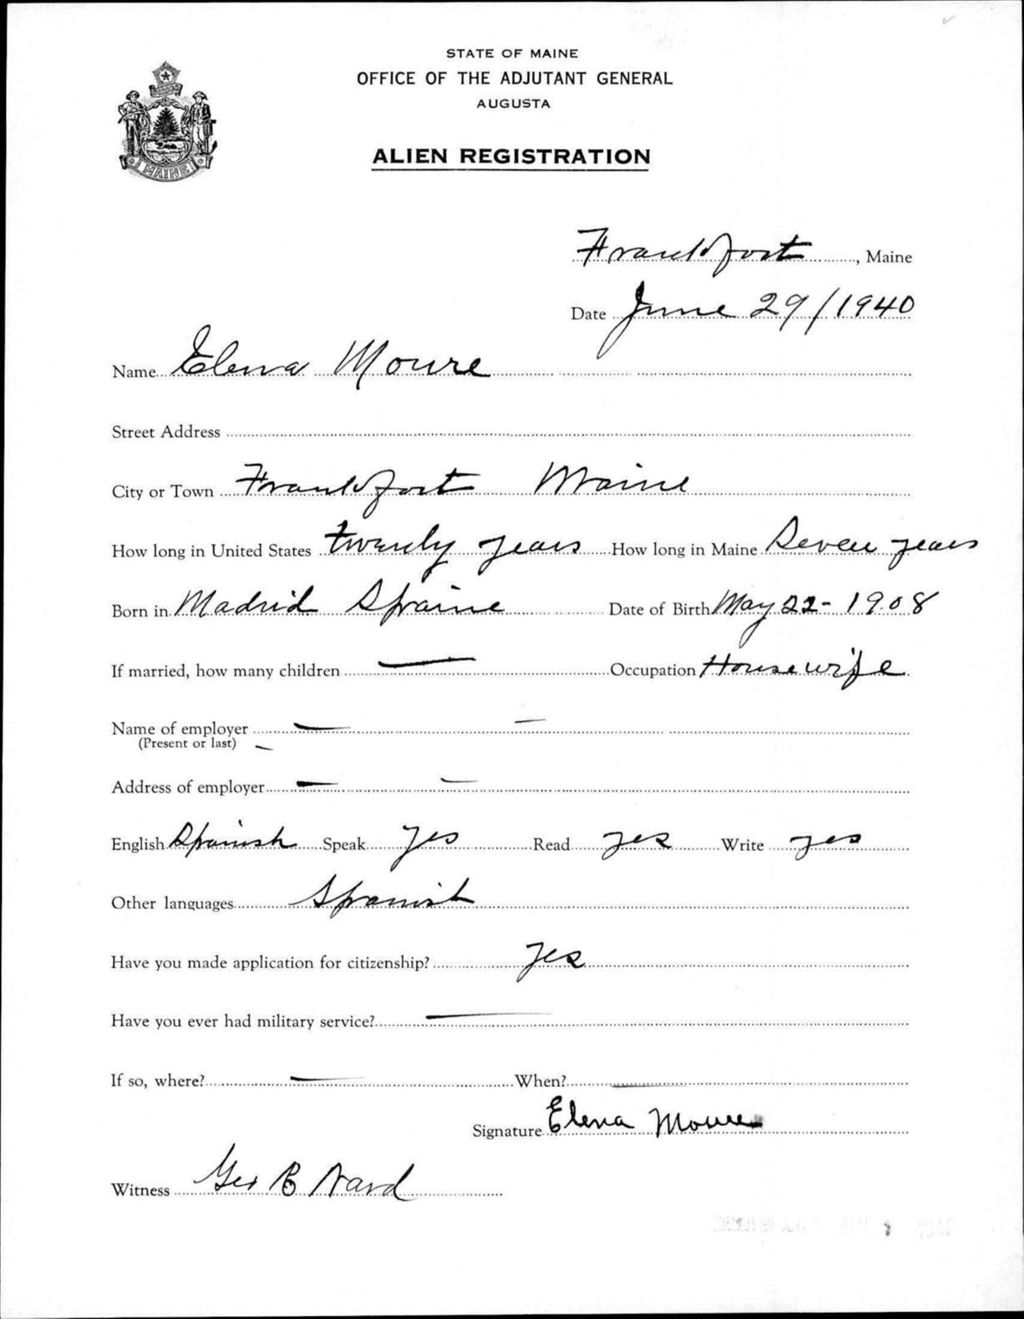 STATE OF MAINE
OFFICE OF THE ADJUTANT GENERAL
AUGUSTA
ALIEN REGISTRATION
MAINE
Frankfort, Maine
Date June 29/1940
Name Elena Moure
Street Address
City or Town Frankfort Maine
How long in United States twenty years How long in Maine Seven years
Born in Madrid Spaine Date of Birth May 22-1908
If married, how many children — Occupation Housewife
Name of employer — —
(Present or last) —
Address of employer — —
English Spanish Speak yes Read yes Write yes
Other languages Spanish
Have you made application for citizenship? Yes
Have you ever had military service? —
If so, where? — When? —
Signature Elena Moure
Witness Geo B Ward